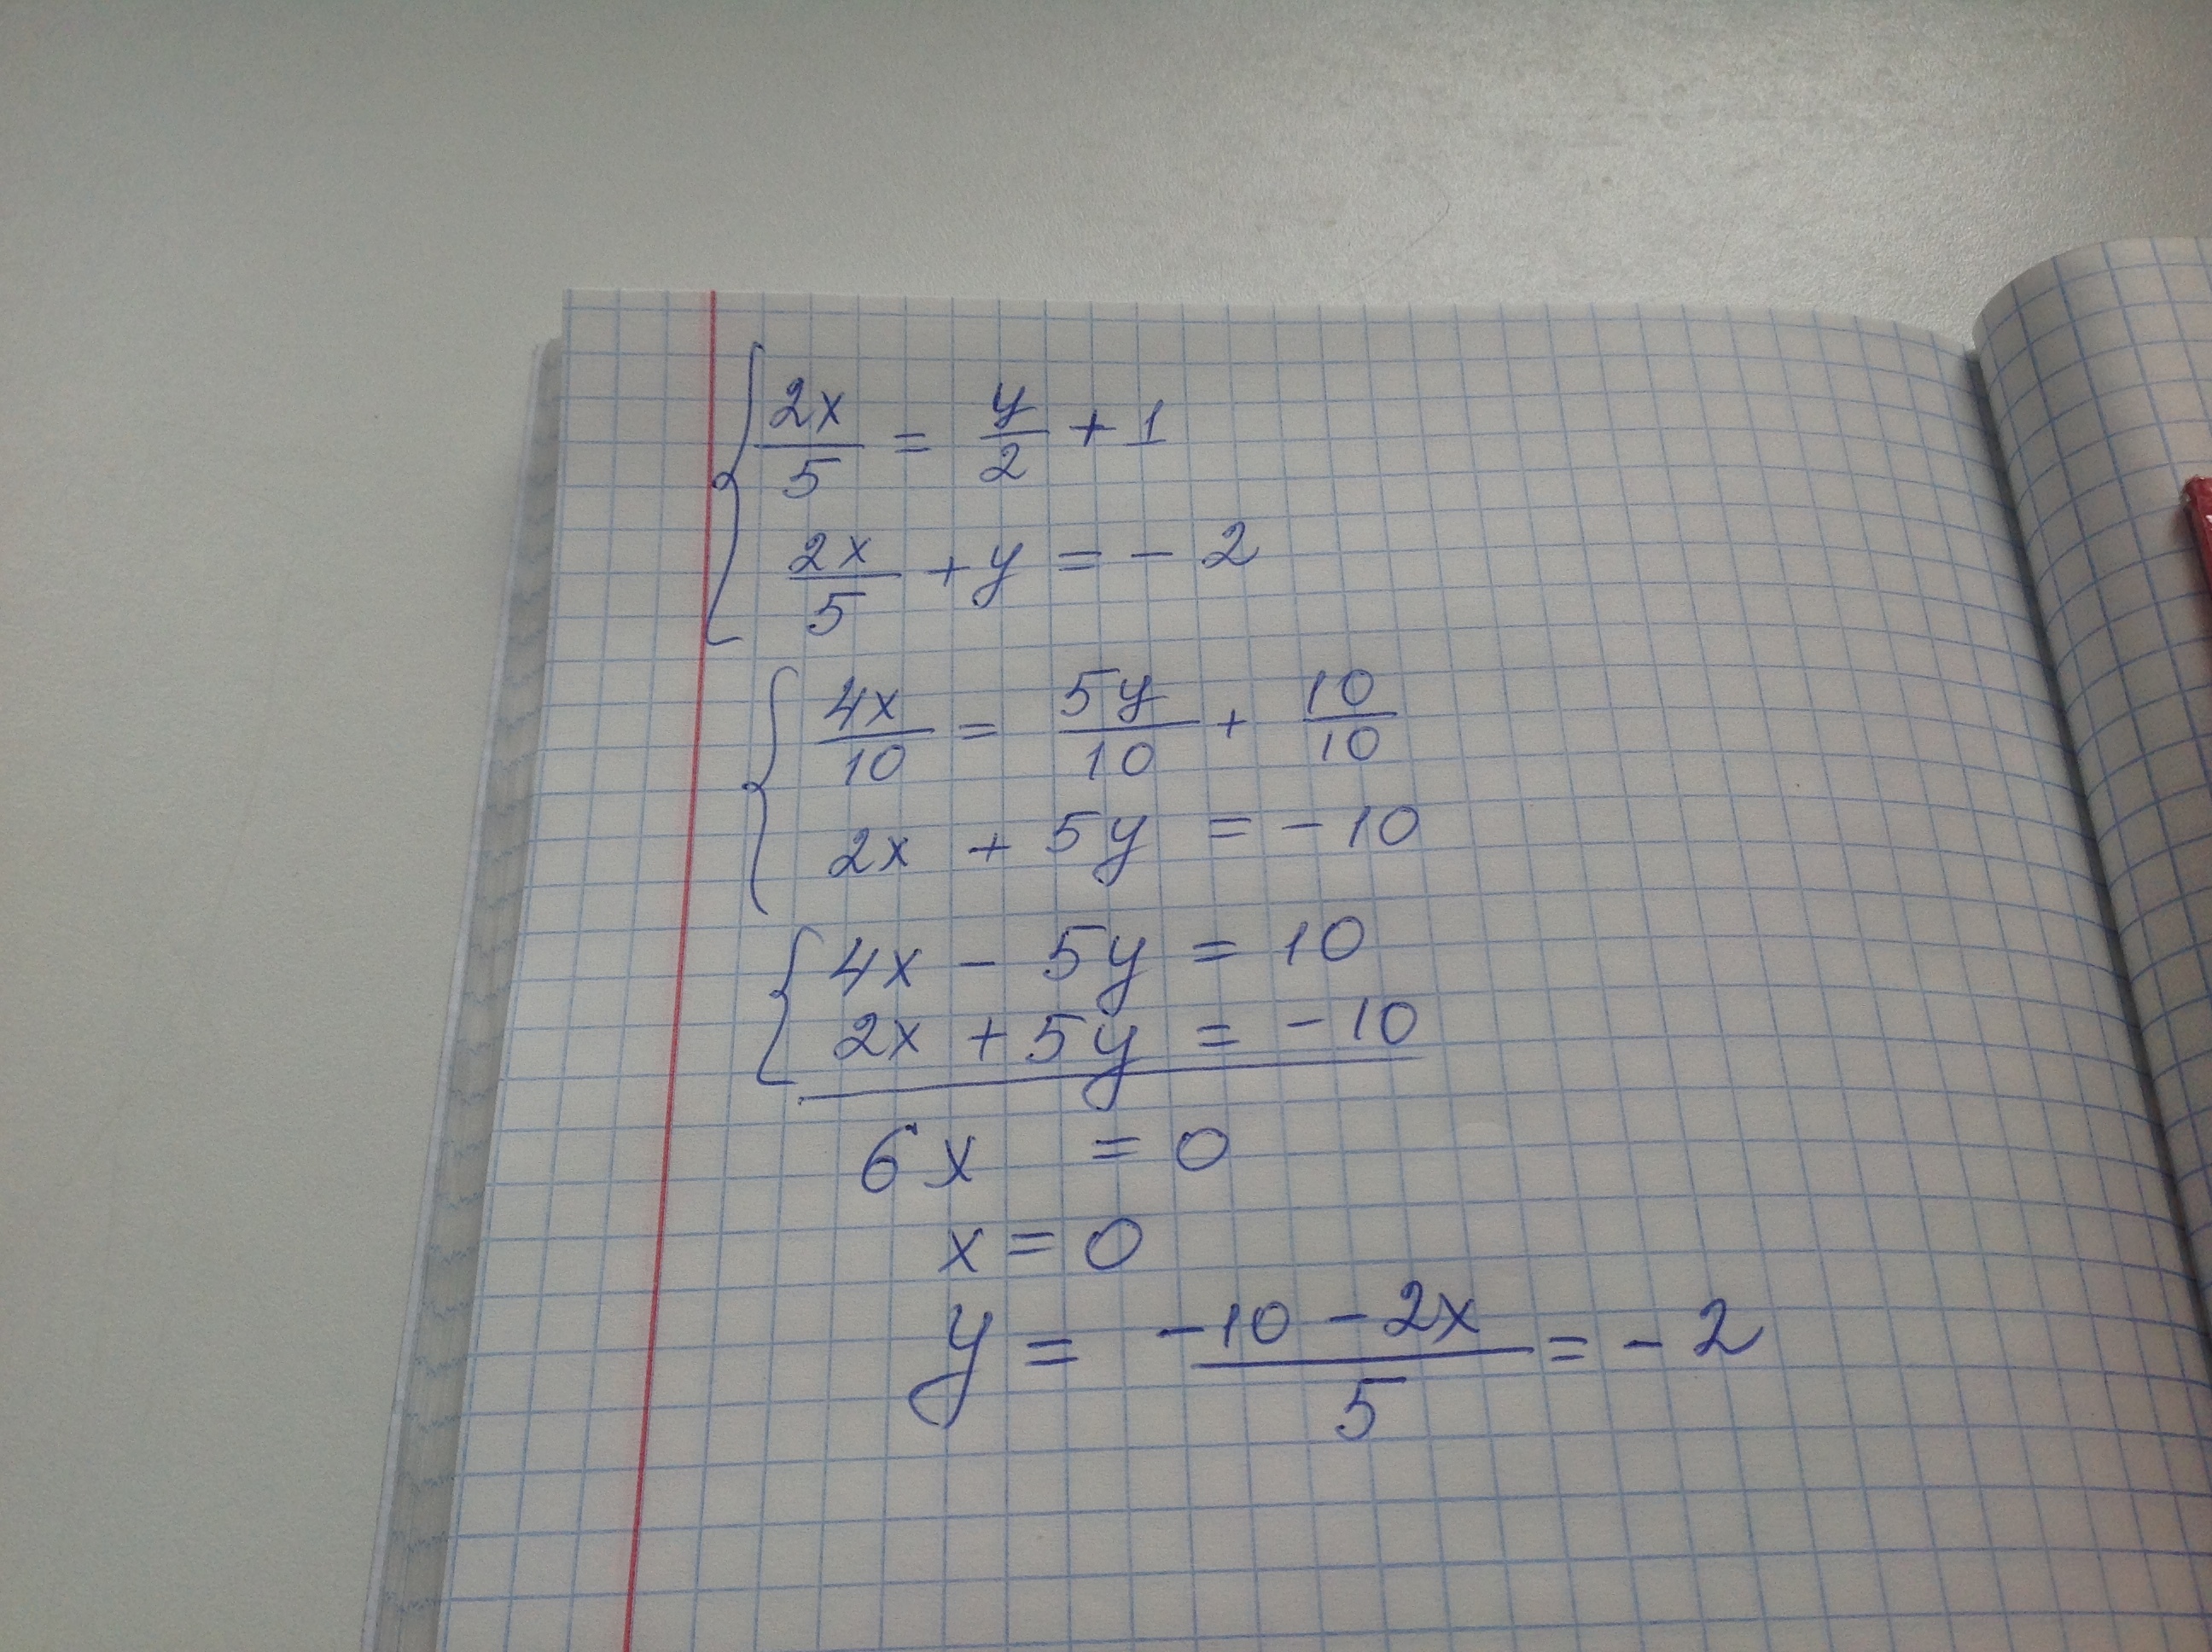 2x/5 = y/2 + 1
2x/5 + y = - 2
4x/10 = 5y/10 + 10/10
2x + 5y = - 10
4x - 5y = 10
2x + 5y = - 10
6x = 0
x = 0
y = (-10 - 2x)/5 = - 2